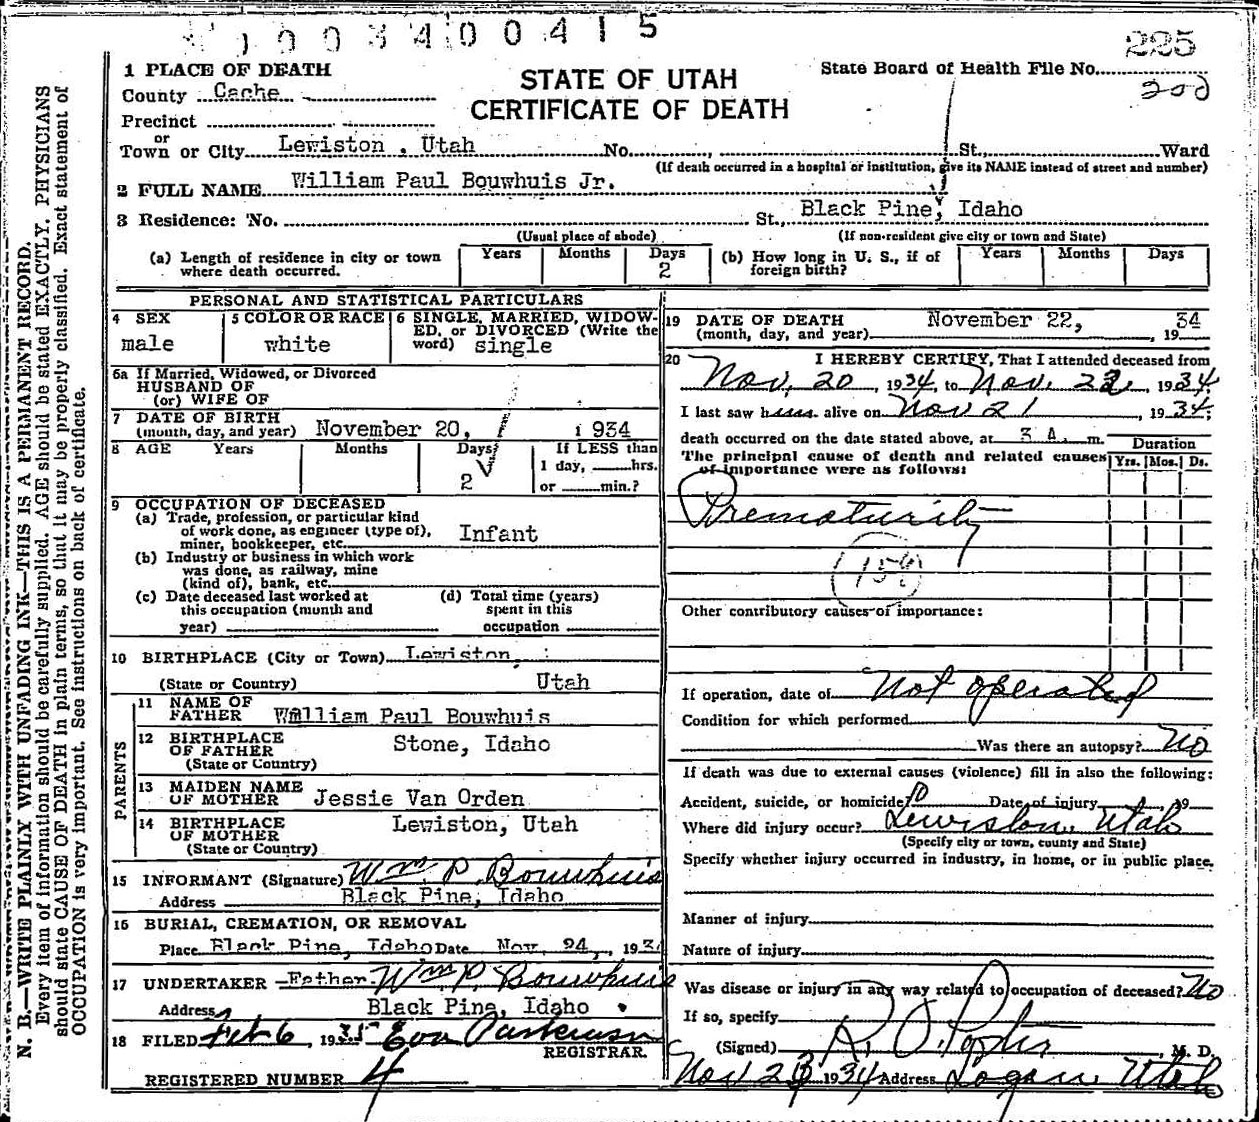 0 0 3 4 0 0 4 1 5
225
200
STATE OF UTAH
CERTIFICATE OF DEATH
State Board of Health File No.
1 PLACE OF DEATH
County Cache
Precinct
or
Town or City Lewiston, Utah No. St., Ward
(If death occurred in a hospital or institution, give its NAME instead of street and number)
2 FULL NAME William Paul Bouwhuis Jr.
3 Residence: No. St., Black Pine, Idaho
(Usual place of abode) (If non-resident give city or town and State)
(a) Length of residence in city or town where death occurred. Years Months Days 2
(b) How long in U. S., if of foreign birth? Years Months Days
PERSONAL AND STATISTICAL PARTICULARS
4 SEX male
5 COLOR OR RACE white
6 SINGLE, MARRIED, WIDOW-
ED, or DIVORCED (Write the
word) single
6a If Married, Widowed, or Divorced
HUSBAND OF
(or) WIFE OF
7 DATE OF BIRTH
(month, day, and year) November 20, 1934
8 AGE Years Months Days 2 If LESS than
1 day, hrs.
or min.?
9 OCCUPATION OF DECEASED
(a) Trade, profession, or particular kind
of work done, as engineer (type of),
miner, bookkeeper, etc. Infant
(b) Industry or business in which work
was done, as railway, mine
(kind of), bank, etc.
(c) Date deceased last worked at
this occupation (month and
year)
(d) Total time (years)
spent in this
occupation
10 BIRTHPLACE (City or Town) Lewiston,
(State or Country) Utah
PARENTS
11 NAME OF
FATHER William Paul Bouwhuis
12 BIRTHPLACE
OF FATHER Stone, Idaho
(State or Country)
13 MAIDEN NAME
OF MOTHER Jessie Van Orden
14 BIRTHPLACE
OF MOTHER Lewiston, Utah
(State or Country)
15 INFORMANT (Signature) Wm. P. Bouwhuis
Address Black Pine, Idaho
16 BURIAL, CREMATION, OR REMOVAL
Place Black Pine, Idaho Date Nov. 24, 1934
17 UNDERTAKER Father. Wm. P. Bouwhuis
Address Black Pine, Idaho
18 FILED Feb 6, 1935 Eva
REGISTRAR.
REGISTERED NUMBER 4
19 DATE OF DEATH
(month, day, and year) November 22, 1934
20 I HEREBY CERTIFY, That I attended deceased from
Nov. 20, 1934, to Nov. 22, 1934
I last saw him alive on Nov 21, 1934;
death occurred on the date stated above, at 3 A. m.
Duration
The principal cause of death and related causes
of importance were as follows: Yrs. Mos. Ds.
Prematurity
159
Other contributory causes of importance:
If operation, date of Not operated
Condition for which performed
Was there an autopsy? No
If death was due to external causes (violence) fill in also the following:
Accident, suicide, or homicide? Date of injury , 19
Where did injury occur? Lewiston, Utah
(Specify city or town, county and State)
Specify whether injury occurred in industry, in home, or in public place.
Manner of injury
Nature of injury
Was disease or injury in any way related to occupation of deceased? No
If so, specify
(Signed) R. O. Porter M. D.
Nov 23 1934 Address Logan, Utah
N. B.—WRITE PLAINLY WITH UNFADING INK—THIS IS A PERMANENT RECORD.
Every item of information should be carefully supplied. AGE should be stated EXACTLY. PHYSICIANS
should state CAUSE OF DEATH in plain terms, so that it may be properly classified. Exact statement of
OCCUPATION is very important. See instructions on back of certificate.